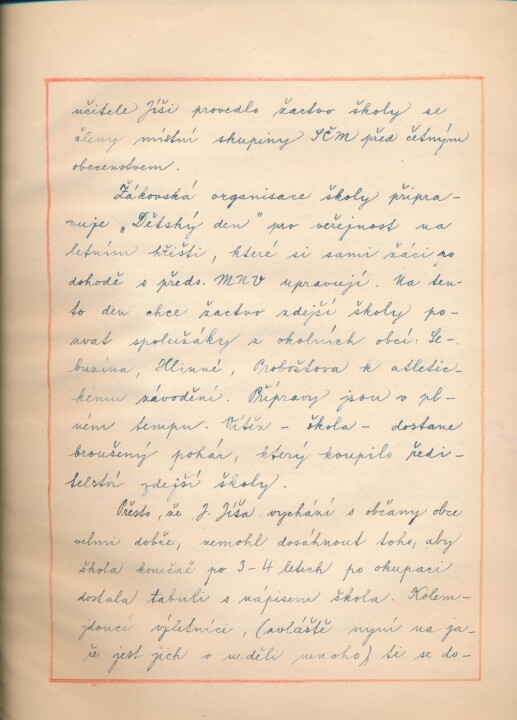 učitele Jíši provedlo žactvo školy se
členy místní skupiny SČM před četným
obecenstvem.
Žákovská organisace školy připra-
vuje „Dětský den" pro veřejnost na
letním hřišti, které si sami žáci po
dohodě s předs. MNV upravují. Na ten-
to den chce žactvo zdejší školy po-
zvat spolužáky z okolních obcí: Se-
buzína, Hlinné, Proboštova k atletic-
kému závodění. Přípravy jsou v pl-
ném tempu. Vítěz - škola - dostane
broušený pohár, který koupilo ředi-
telství zdejší školy.
Přesto, že J. Jíša vychází s občany obce
velmi dobře, nemohl dosáhnout toho, aby
škola konečně po 3-4 letech po okupaci
dostala tabuli s nápisem škola. Kolem-
jdoucí výletníci, (zvláště nyní na ja-
ře jest jich v neděli mnoho), ti se do-